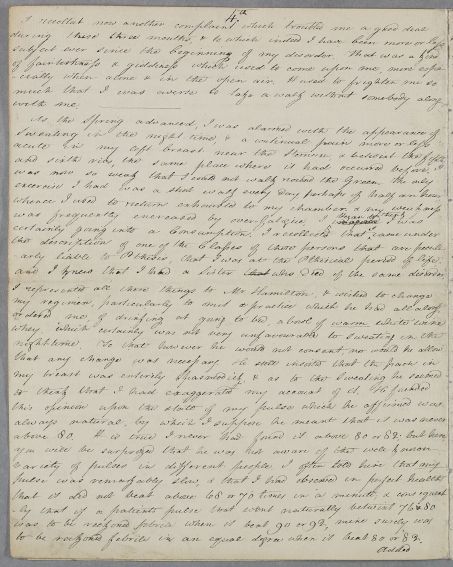 4th
I recollect now another complaint which troubled me a good deal
during these three months, & to which indeed I have been more or less
subject ever since the beginning of my disorder that was a kind
of faintishness & giddiness which used to come upon me more espe-
-cially when alone & in the open air. It used to frighten me so
much that I was averse to take a walk without somebody along
with me
As the Spring advanced, I was alarmed with the appearance of
Sweating in the night time & a continual pain more or less
acute in my left breast near the Sternum & between the fifth
and sixth rib, the same place where it had occurred before; I
was now so weak that I could not walk round the Green, the only
exercise I had was a short walk every day perhaps of half an hour
whence I used to return exhausted to my chamber, & my weakness
was frequently encreased by over fatigue. I began to think I was
certainly going into a Consumption, I recollected that I came under
the description of one of the Classes of those persons that are pecul-
-arly liable to Phthisis, that I was at the Phthisical period of life,
and I knew that I had a sister who died of the same disorder
I represented all these things to Mr Hamilton, & wished to change
my regimen, particularly to omit a practice which he had all along
ordered me, of drinking at going to bed, about of warm white wine
whey which certainly was not very unfavourable to sweating in the
night time. To that however he would not consent, nor would he allow
that any change was necessary. He still insisted that the pain in
my breast was entirely Spasmodic, & as to the Sweating he seemed
to think that I had exaggerated my account of it. He founded
this opinion upon the state of my pulse which he affirmed was
always natural, by which I suppose he meant that it was never
above 80. It is true I never had found it above 80 or 82. but here
you will be surprized that he was not aware of the well known
variety of pulses in different people. I often told him that my
pulse was remarkably slow, & that I had observed in perfect health
that it did not beat above 68 or 70 times in a minute, & consequent-
-ly that if a patients pulse that went naturally between 76 & 80
was to be reckoned febrile when it beat 90 or 92, mine surely was
to be reckoned febrile in an equal degree when it beat 80 or 82.
added